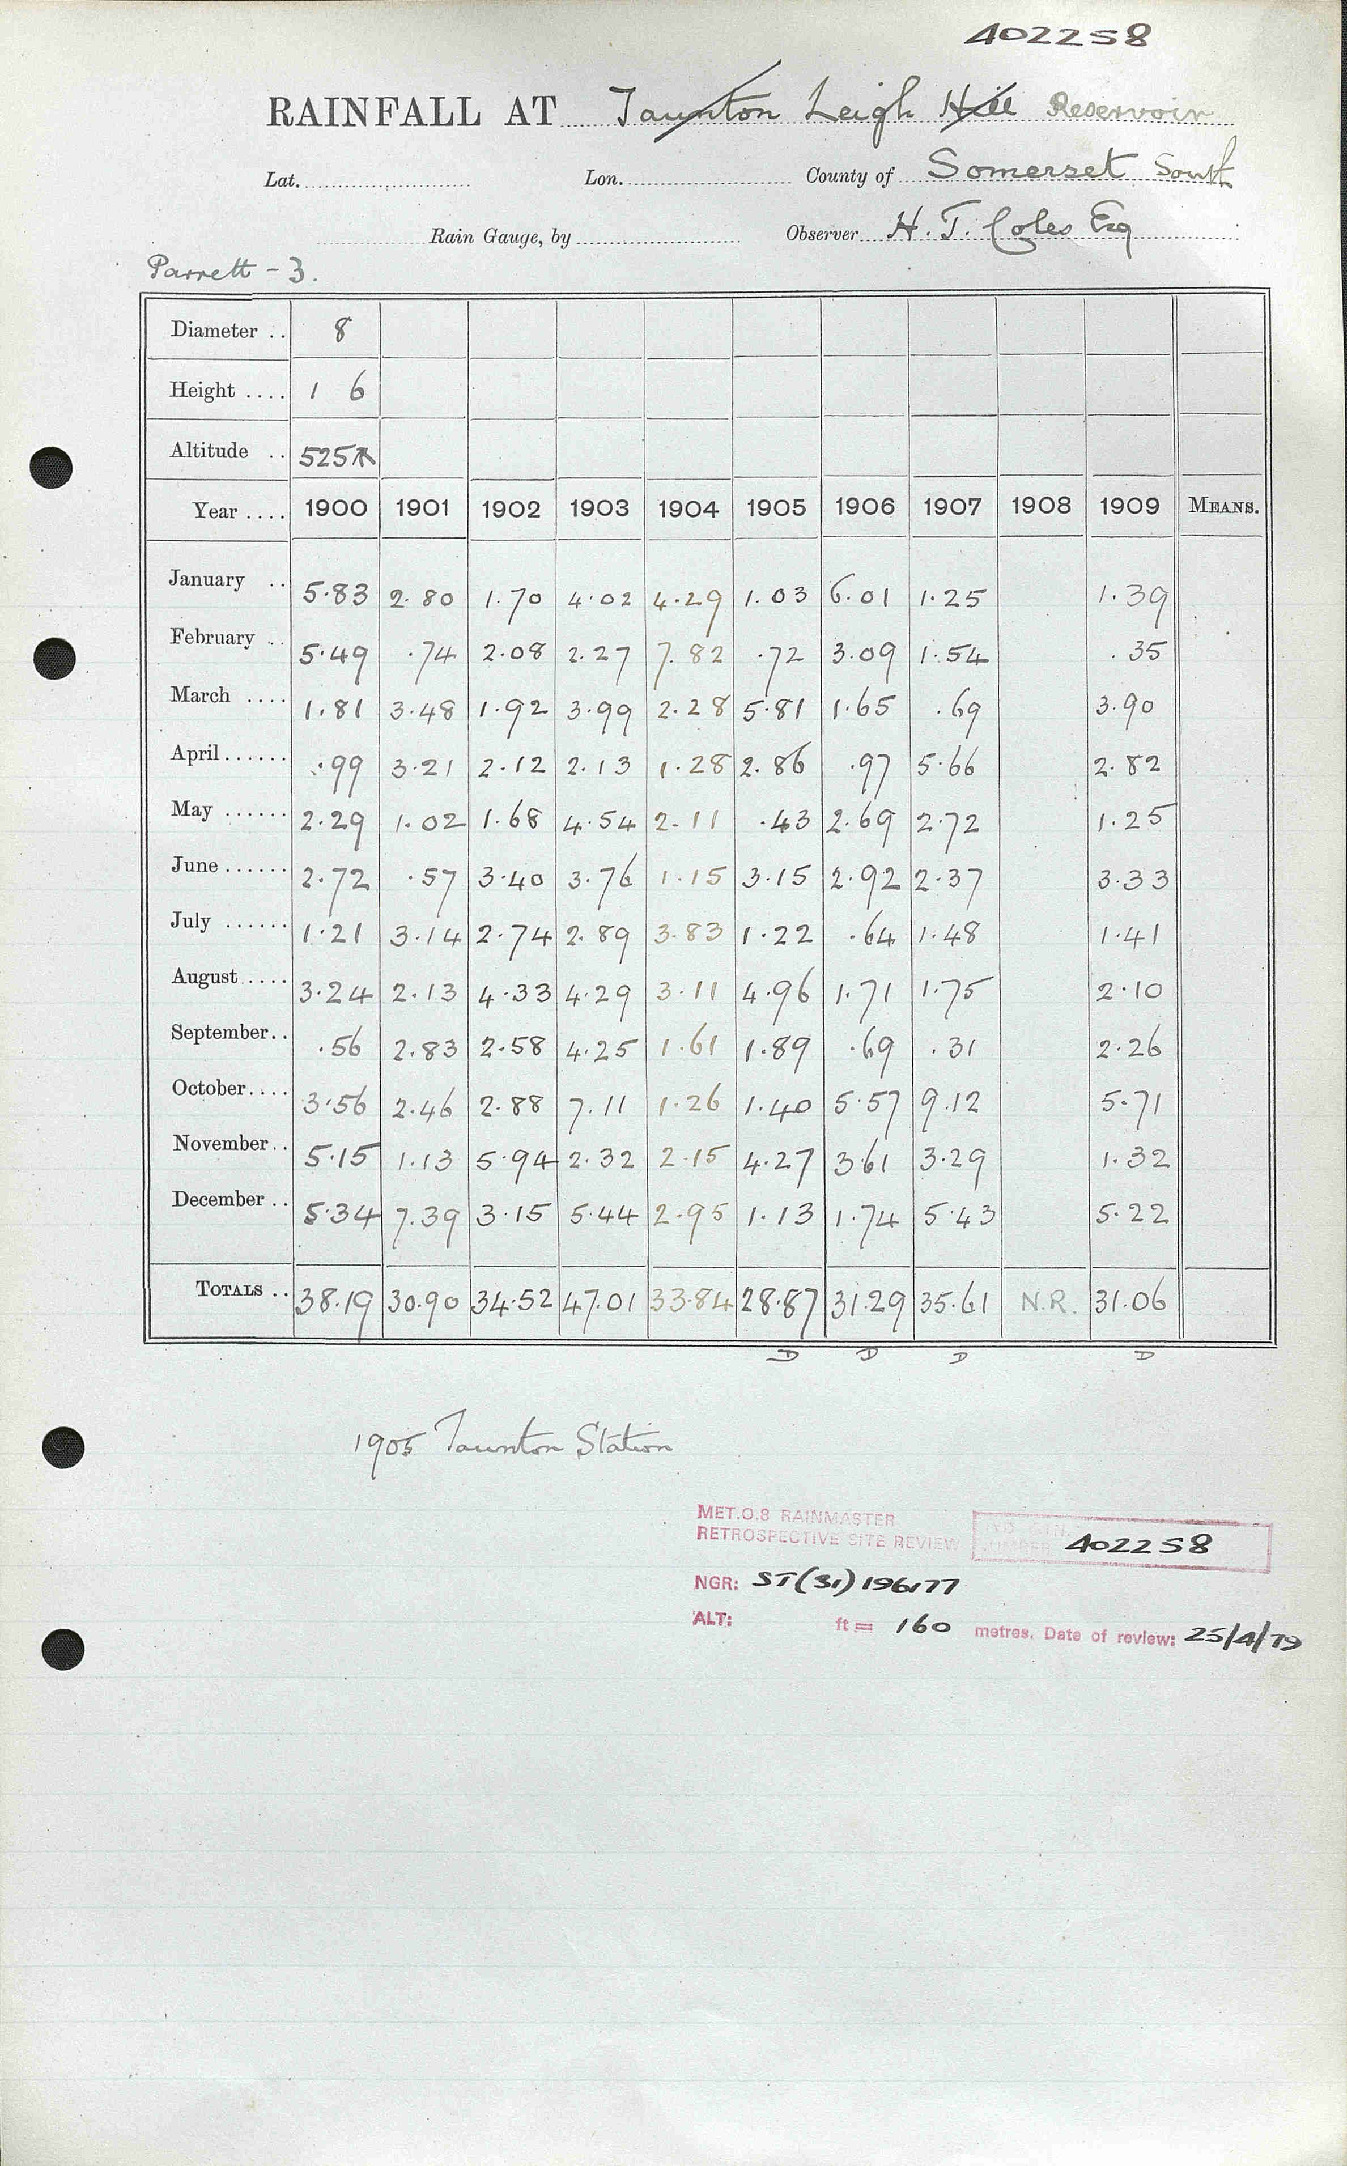 402258
RAINFALL AT Taunton Leigh Hill Reservoir
Lat. Lon. County of Somerset South
Rain Gauge, by Observer H. T. Coles Esq
Parrett - 3.
Diameter .. 8
Height .... 1 6
Altitude .. 525
Year .... 1900 1901 1902 1903 1904 1905 1906 1907 1908 1909 MEANS.
January .. 5.83 2.80 1.70 4.02 4.29 1.03 6.01 1.25 1.39
February .. 5.49 .74 2.08 2.27 7.82 .72 3.09 1.54 .35
March .... 1.81 3.48 1.92 3.99 2.28 5.81 1.65 .69 3.90
April ...... .99 3.21 2.12 2.13 1.28 2.86 .97 5.66 2.82
May ...... 2.29 1.02 1.68 4.54 2.11 .43 2.69 2.72 1.25
June ...... 2.72 .57 3.40 3.76 1.15 3.15 2.92 2.37 3.33
July ...... 1.21 3.14 2.74 2.89 3.83 1.22 .64 1.48 1.41
August .... 3.24 2.13 4.33 4.29 3.11 4.96 1.71 1.75 2.10
September .. .56 2.83 2.58 4.25 1.61 1.89 .69 .31 2.26
October .... 3.56 2.46 2.88 7.11 1.26 1.40 5.57 9.12 5.71
November .. 5.15 1.13 5.94 2.32 2.15 4.27 3.61 3.29 1.32
December .. 5.34 7.39 3.15 5.44 2.95 1.13 1.74 5.43 5.22
TOTALS .. 38.19 30.90 34.52 47.01 33.84 28.87 31.29 35.61 N.R. 31.06
D D D D
1905 Taunton Station
MET.O.8 RAINMASTER
RETROSPECTIVE SITE REVIEW 402258
NGR: ST(31)196177
ALT: ft = 160 metres. Date of review: 25/4/79